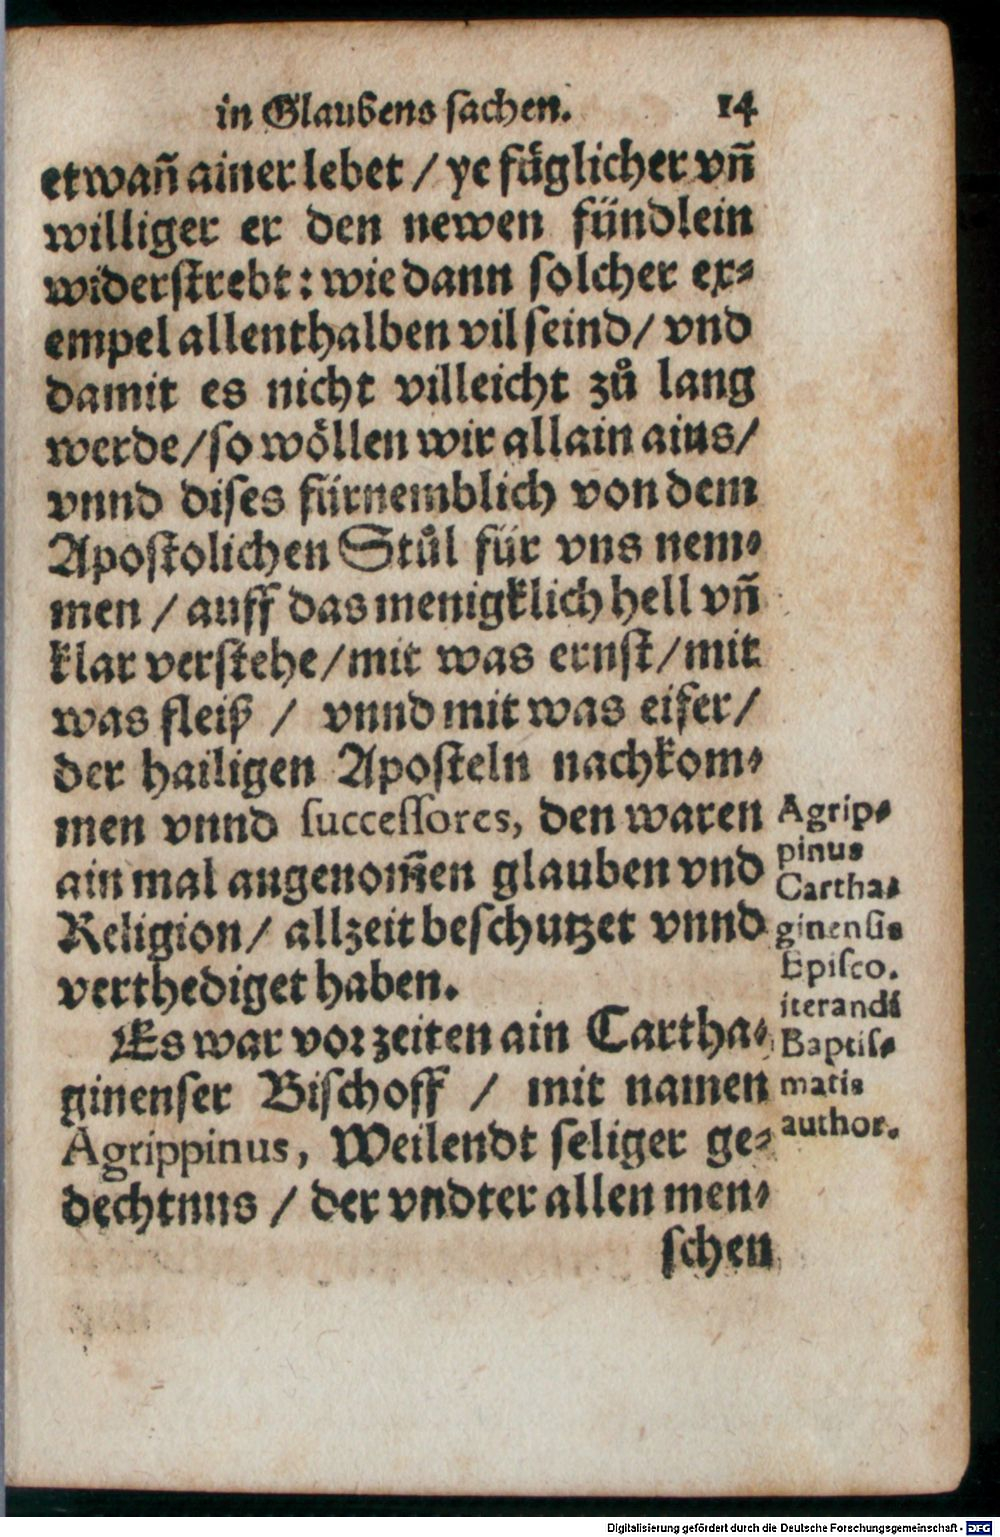 in Glaubens sachen. 14
etwañ ainer lebet / ye füglicher vñ
williger er den newen fündlein
widerstrebt: wie dann solcher ex⸗
empel allenthalben vil seind / vnd
damit es nicht villeicht zů lang
werde / so wöllen wir allain ains /
vnnd dises fürnemblich von dem
Apostolichen Stůl für vns nem⸗
men / auff das menigklich hell vñ
klar verstehe / mit was ernst / mit
was fleiß / vnnd mit was eifer /
der hailigen Aposteln nachkom⸗
men vnnd successores, den waren
ain mal angenom̃en glauben vnd
Religion / allzeit beschutzet vnnd
verthediget haben.
Es war vorzeiten ain Cartha⸗
ginenser Bischoff / mit namen
Agrippinus, Weilendt seliger ge⸗
dechtnus / der vndter allen men⸗
schen
Agrip⸗
pinus
Cartha⸗
ginensis
Episco.
iterandi
Baptis⸗
matis
author.
Digitalisierung gefördert durch die Deutsche Forschungsgemeinschaft - DFG